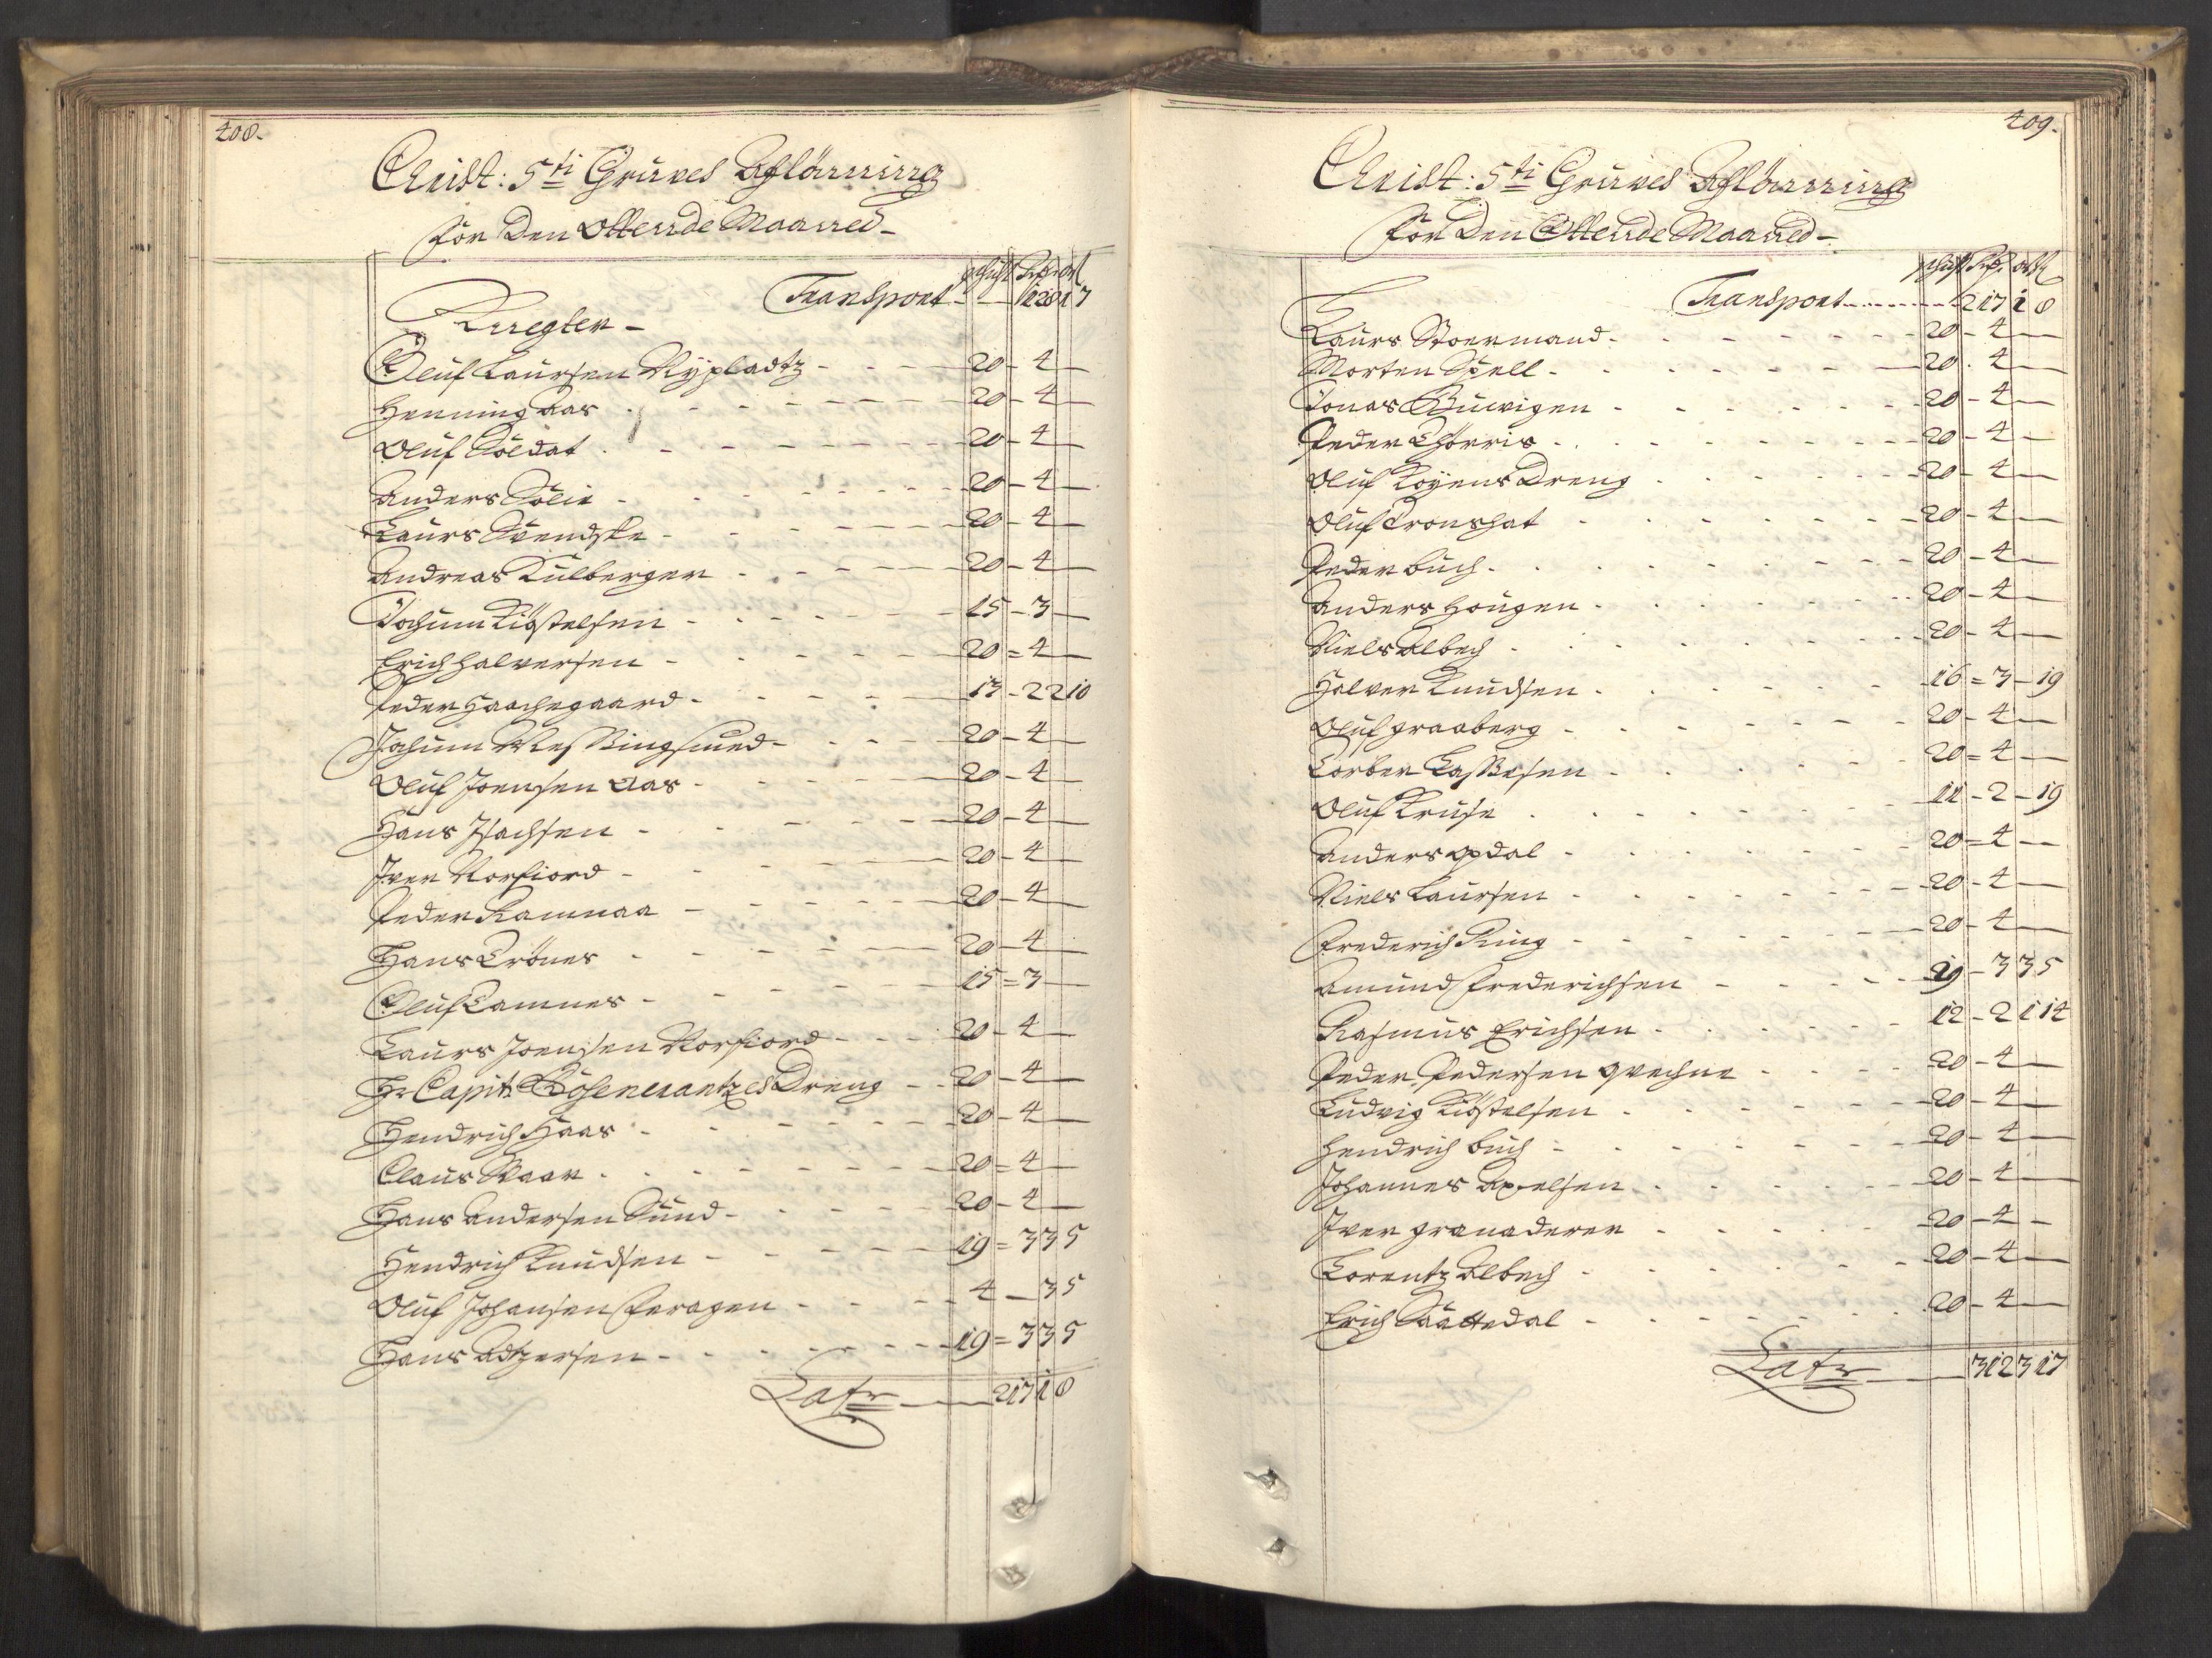 408.
Christ: 5ti Gruves Afslönning
for Den Ottende Maaned
schift Rdr ort ß
Transport - 128 1 7
Knegter
Oluf Laursen Nÿpladtz - 20 - 4
Henning Aas - 20 - 4
Oluf Soldat - 20 - 4
Anders Solie - 20 - 4
Laurs Svendske - 20 - 4
Andreas Kulberger - 20 - 4
Jochum Kiöstelsen - 15 - 3
Erich Halversen - 20 = 4
Peder Haachegaard - 13 - 2 2 10
Jochum Messingsmed - 20 - 4
Oluf Joensen Aas - 20 - 4
Hans Isachsen - 20 - 4
Iver Norfiord - 20 - 4
Peder Ramnaa - 20 - 4
Hans Trönes - 20 - 4
Oluf Tamnes - 15 = 3
Laurs Joensen Norfiord - 20 - 4
Hr Capit Dreng - 20 - 4
Hendrich Haas - 20 - 4
Claus Skaar - 20 = 4
Hans Andersen Sund - 20 - 4
Hendrich Knudsen - 19 = 3 3 5
Oluf Johansen Feragen - 4 - 3 5
Hans Adtzersen - 19 = 3 3 5
Latr - 217 1 8
409.
Christ: 5ti Gruves Afslönning
for Den Ottende Maaned
schift Rdr ort ß
Transport - 217 1 8
Laurs Stoermand - 20 - 4
Morten Spell - 20 - 4
Jonas Buvigen - 20 - 4
Peder - 20 - 4
Oluf Koyens Dreng - 20 - 4
Oluf Tronshat - 20 - 4
Peder Buch - 20 - 4
Anders Hougen - 20 - 4
Niels Albech - 20 - 4
Halver Knudsen - 16 = 3 - 19
Oluf Graaberg - 20 - 4
Torber Lassesen - 20 = 4
Oluf Kruse - 11 - 2 - 19
Anders Opdal - 20 = 4
Niels Laursen - 20 - 4
Frederich Ring - 20 - 4
Amund Frederichsen - 19 - 3 3 5
Rasmus Erichsen - 12 - 2 1 14
Peder Pedersen Qvechne - 20 - 4
Ludvig Kiöstelsen - 20 - 4
Hendrich Buch - 20 - 4
Johannes Axelsen - 20 - 4
Iver Granaderer - 20 - 4
Lorentz Albech - 20 - 4
Erich Saattedal - 20 - 4
Latr - 312 3 17